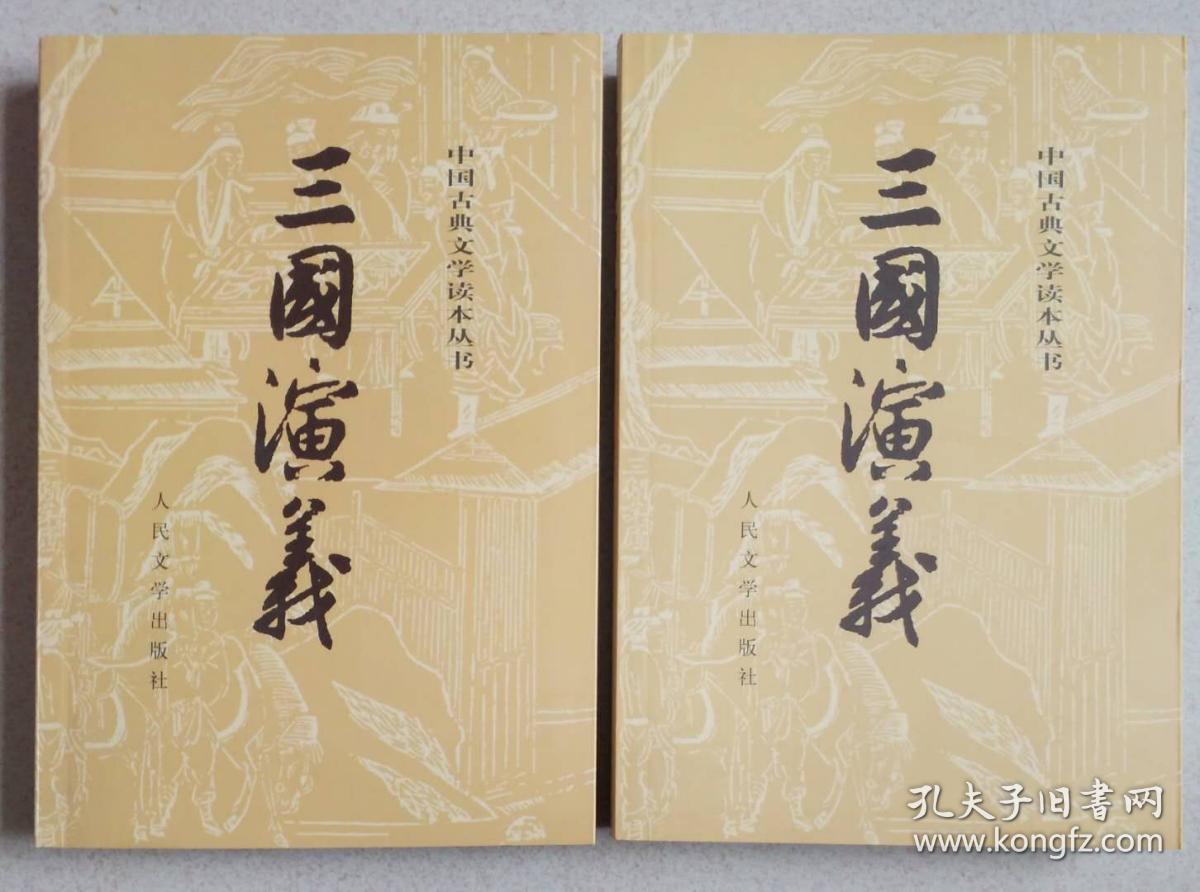 中国古典文学读本丛书
三國演義
人民文学出版社
中国古典文学读本丛书
三國演義
人民文学出版社
孔夫子旧書网
www.kongfz.com